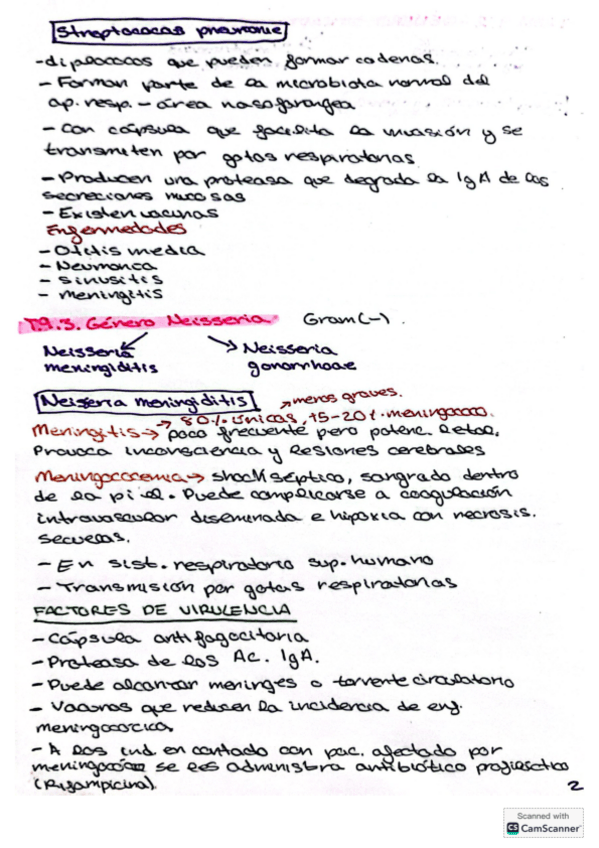 Streptococos pneumonie
-diplococos que pueden formar cadenas.
- Forman parte de la microbiota normal del
ap. resp. - área nasofaríngea
- Con cápsula que facilita la invasión y se
transmiten por gotas respiratorias
- Producen una proteasa que degrada la IgA de las
secreciones mucosas
- Existen vacunas
Enfermedades
- Otitis media
- Neumonía
- sinusitis
- meningitis
T9.3. Género Neisseria Gram(-).
Neisseria meningiditis
Neisseria gonorrhoae
Neisseria meningiditis
→ menos graves.
→ 80% únicas, 15-20% meningococo.
Meningitis → poco frecuente pero potenc. letal.
Provoca inconsciencia y lesiones cerebrales
Meningococemia → shock séptico, sangrado dentro
de la piel. Puede complicarse a coagulación
intravascular diseminada e hipoxia con necrosis.
secuelas.
- En sist. respiratorio sup. humano
- Transmisión por gotas respiratorias
FACTORES DE VIRULENCIA
- Cápsula antifagocitoria
- Proteasa de los Ac. IgA.
- Puede alcanzar meninges o torrente circulatorio
- Vacunas que reducen la incidencia de enf.
meningocócica.
- A los ind en contacto con pac. afectado por
meningococo se les administra antibiótico profiláctico
(Rifampicina).
2
Scanned with
CS CamScanner